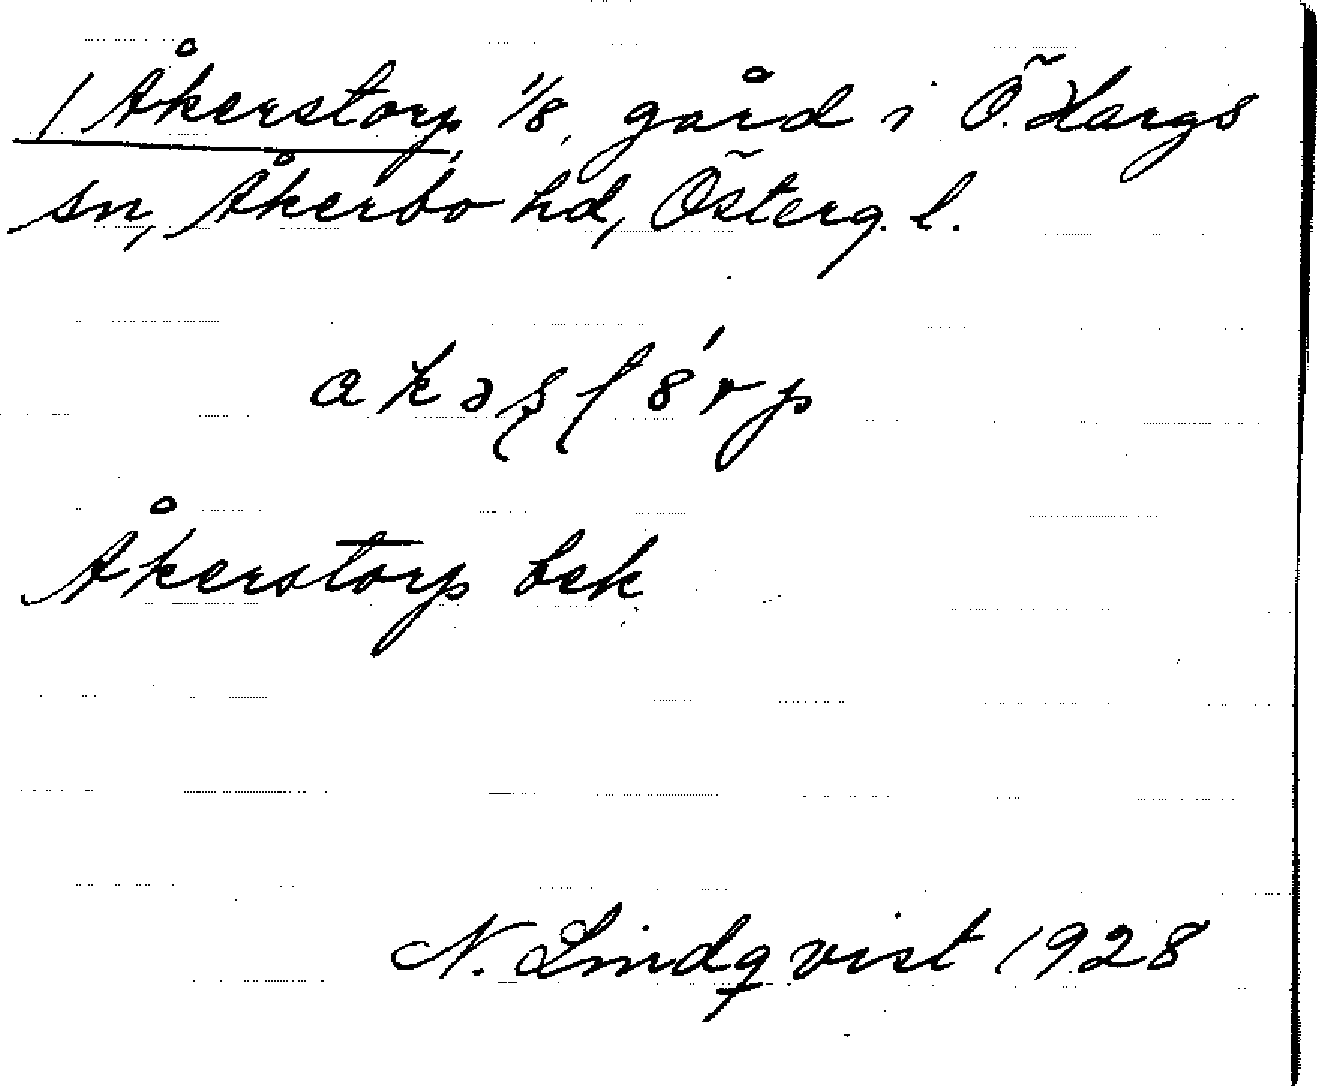 1 Åkerstorp, 1/8, gård i Ö. Hargs
sn, Åkerbo hd, Österg. l.
Åkerstorp bek
N. Lindqvist 1928